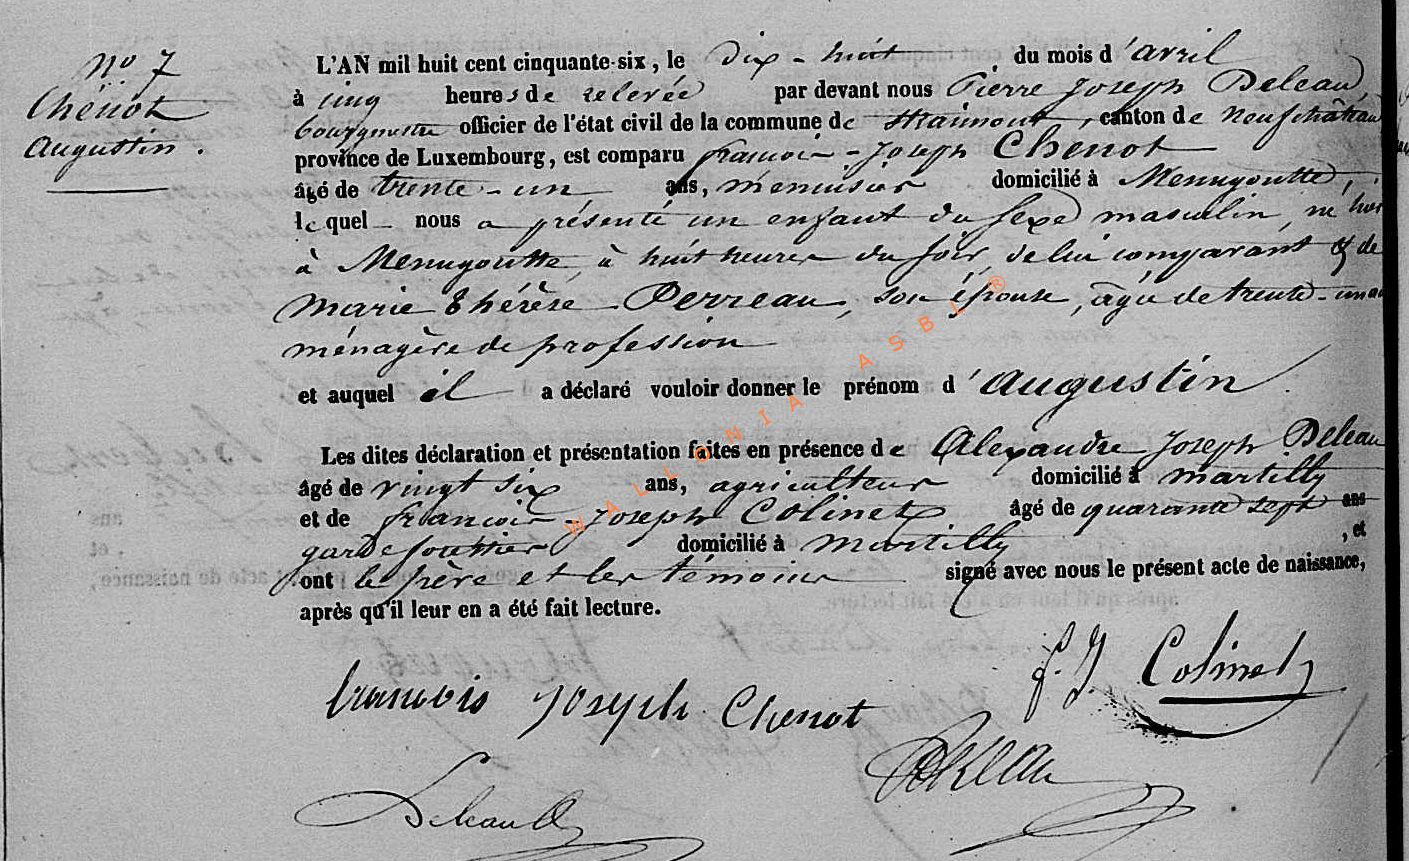 No 7
Chenot
Augustin.
L'AN mil huit cent cinquante-six, le dix-huit du mois d'avril
à cinq heures de relevée par devant nous Pierre Joseph Deleau,
bourgmestre officier de l'état civil de la commune de Straimont, canton de Neufchâteau
province de Luxembourg, est comparu françois-Joseph Chenot
âgé de trente-un ans, menuisier domicilié à Menugoutte,
lequel nous a présenté un enfant du sexe masculin, né hier
à Menugoutte, à huit heures du soir, de lui comparant & de
Marie Thérèse Perreau, son épouse, âgée de trente-un ans
ménagère de profession
et auquel il a déclaré vouloir donner le prénom d'Augustin.
Les dites déclaration et présentation faites en présence de Alexandre Joseph Deleau
âgé de vingt six ans, agriculteur domicilié à Martilly
et de françois-Joseph Colinet âgé de quarante sept ans
garde forestier domicilié à Martilly, et
ont le père et les témoins signé avec nous le présent acte de naissance,
après qu'il leur en a été fait lecture.
francois Joseph Chenot
f. J. Colinet
Deleau
Deleau
WALLONIA ASBL ®